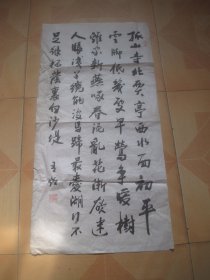 孤山寺北賈亭西水面初平
雲脚低幾處早鶯爭暖樹
誰家新燕啄春泥亂花漸欲迷
人眼淺草纔能沒馬蹄最愛湖東行不
足綠楊蔭裏白沙堤